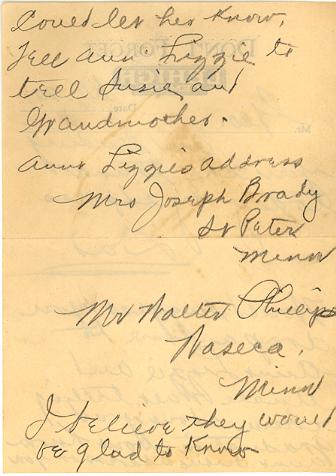 Could let her know.
Tell Ann Lizzie to
tell Susie and
Grandmother.
Anna Lizzie's address
Mrs Joseph Brady
St Peter
Minn
Mr Walter Phillips
Waseca.
Minn
I believe they would
be glad to know